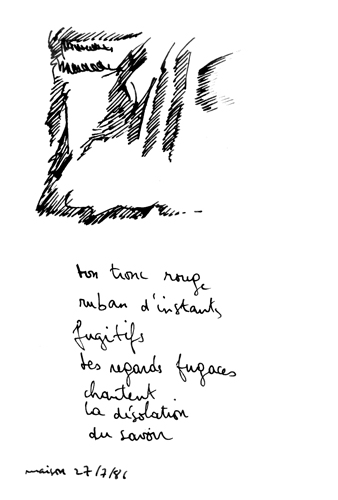 ton tronc rouge
ruban d'instants
fugitifs
tes regards fugaces
chantent
la désolation
du savoir
maison 27/7/86